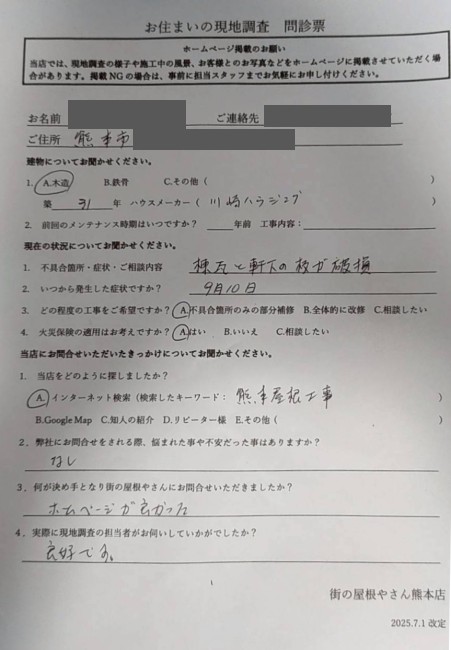 お住まいの現地調査 問診票
ホームページ掲載のお願い
当店では、現地調査の様子や施工中の風景、お客様とのお写真などをホームページに掲載させていただく場
合があります。掲載NGの場合は、事前に担当スタッフまでお気軽にお申し付けください。
お名前 ご連絡先
ご住所 熊本市
建物についてお聞かせください。
1. A.木造 B.鉄骨 C.その他 ( )
築 31 年 ハウスメーカー ( 川崎ハウジング )
2. 前回のメンテナンス時期はいつですか? 年前 工事内容:
現在の状況についてお聞かせください。
1. 不具合箇所・症状・ご相談内容 棟瓦と軒下の板が破損
2. いつから発生した症状ですか? 9月10日
3. どの程度の工事をご希望ですか? A.不具合箇所のみの部分補修 B.全体的に改修 C.相談したい
4. 火災保険の適用はお考えですか? A.はい B.いいえ C.相談したい
当店にお問合せいただいたきっかけについてお聞かせください。
1. 当店をどのように探しましたか?
A.インターネット検索 (検索したキーワード: 熊本屋根工事 )
B.Google Map C.知人の紹介 D.リピーター様 E.その他( )
2、弊社にお問合せをされる際、悩まれた事や不安だった事はありますか?
なし
3、何が決め手となり街の屋根やさんにお問合せいただきましたか?
ホームページが良かった
4、実際に現地調査の担当者がお伺いしていかがでしたか?
良好です。
1
街の屋根やさん熊本店
2025.7.1 改定